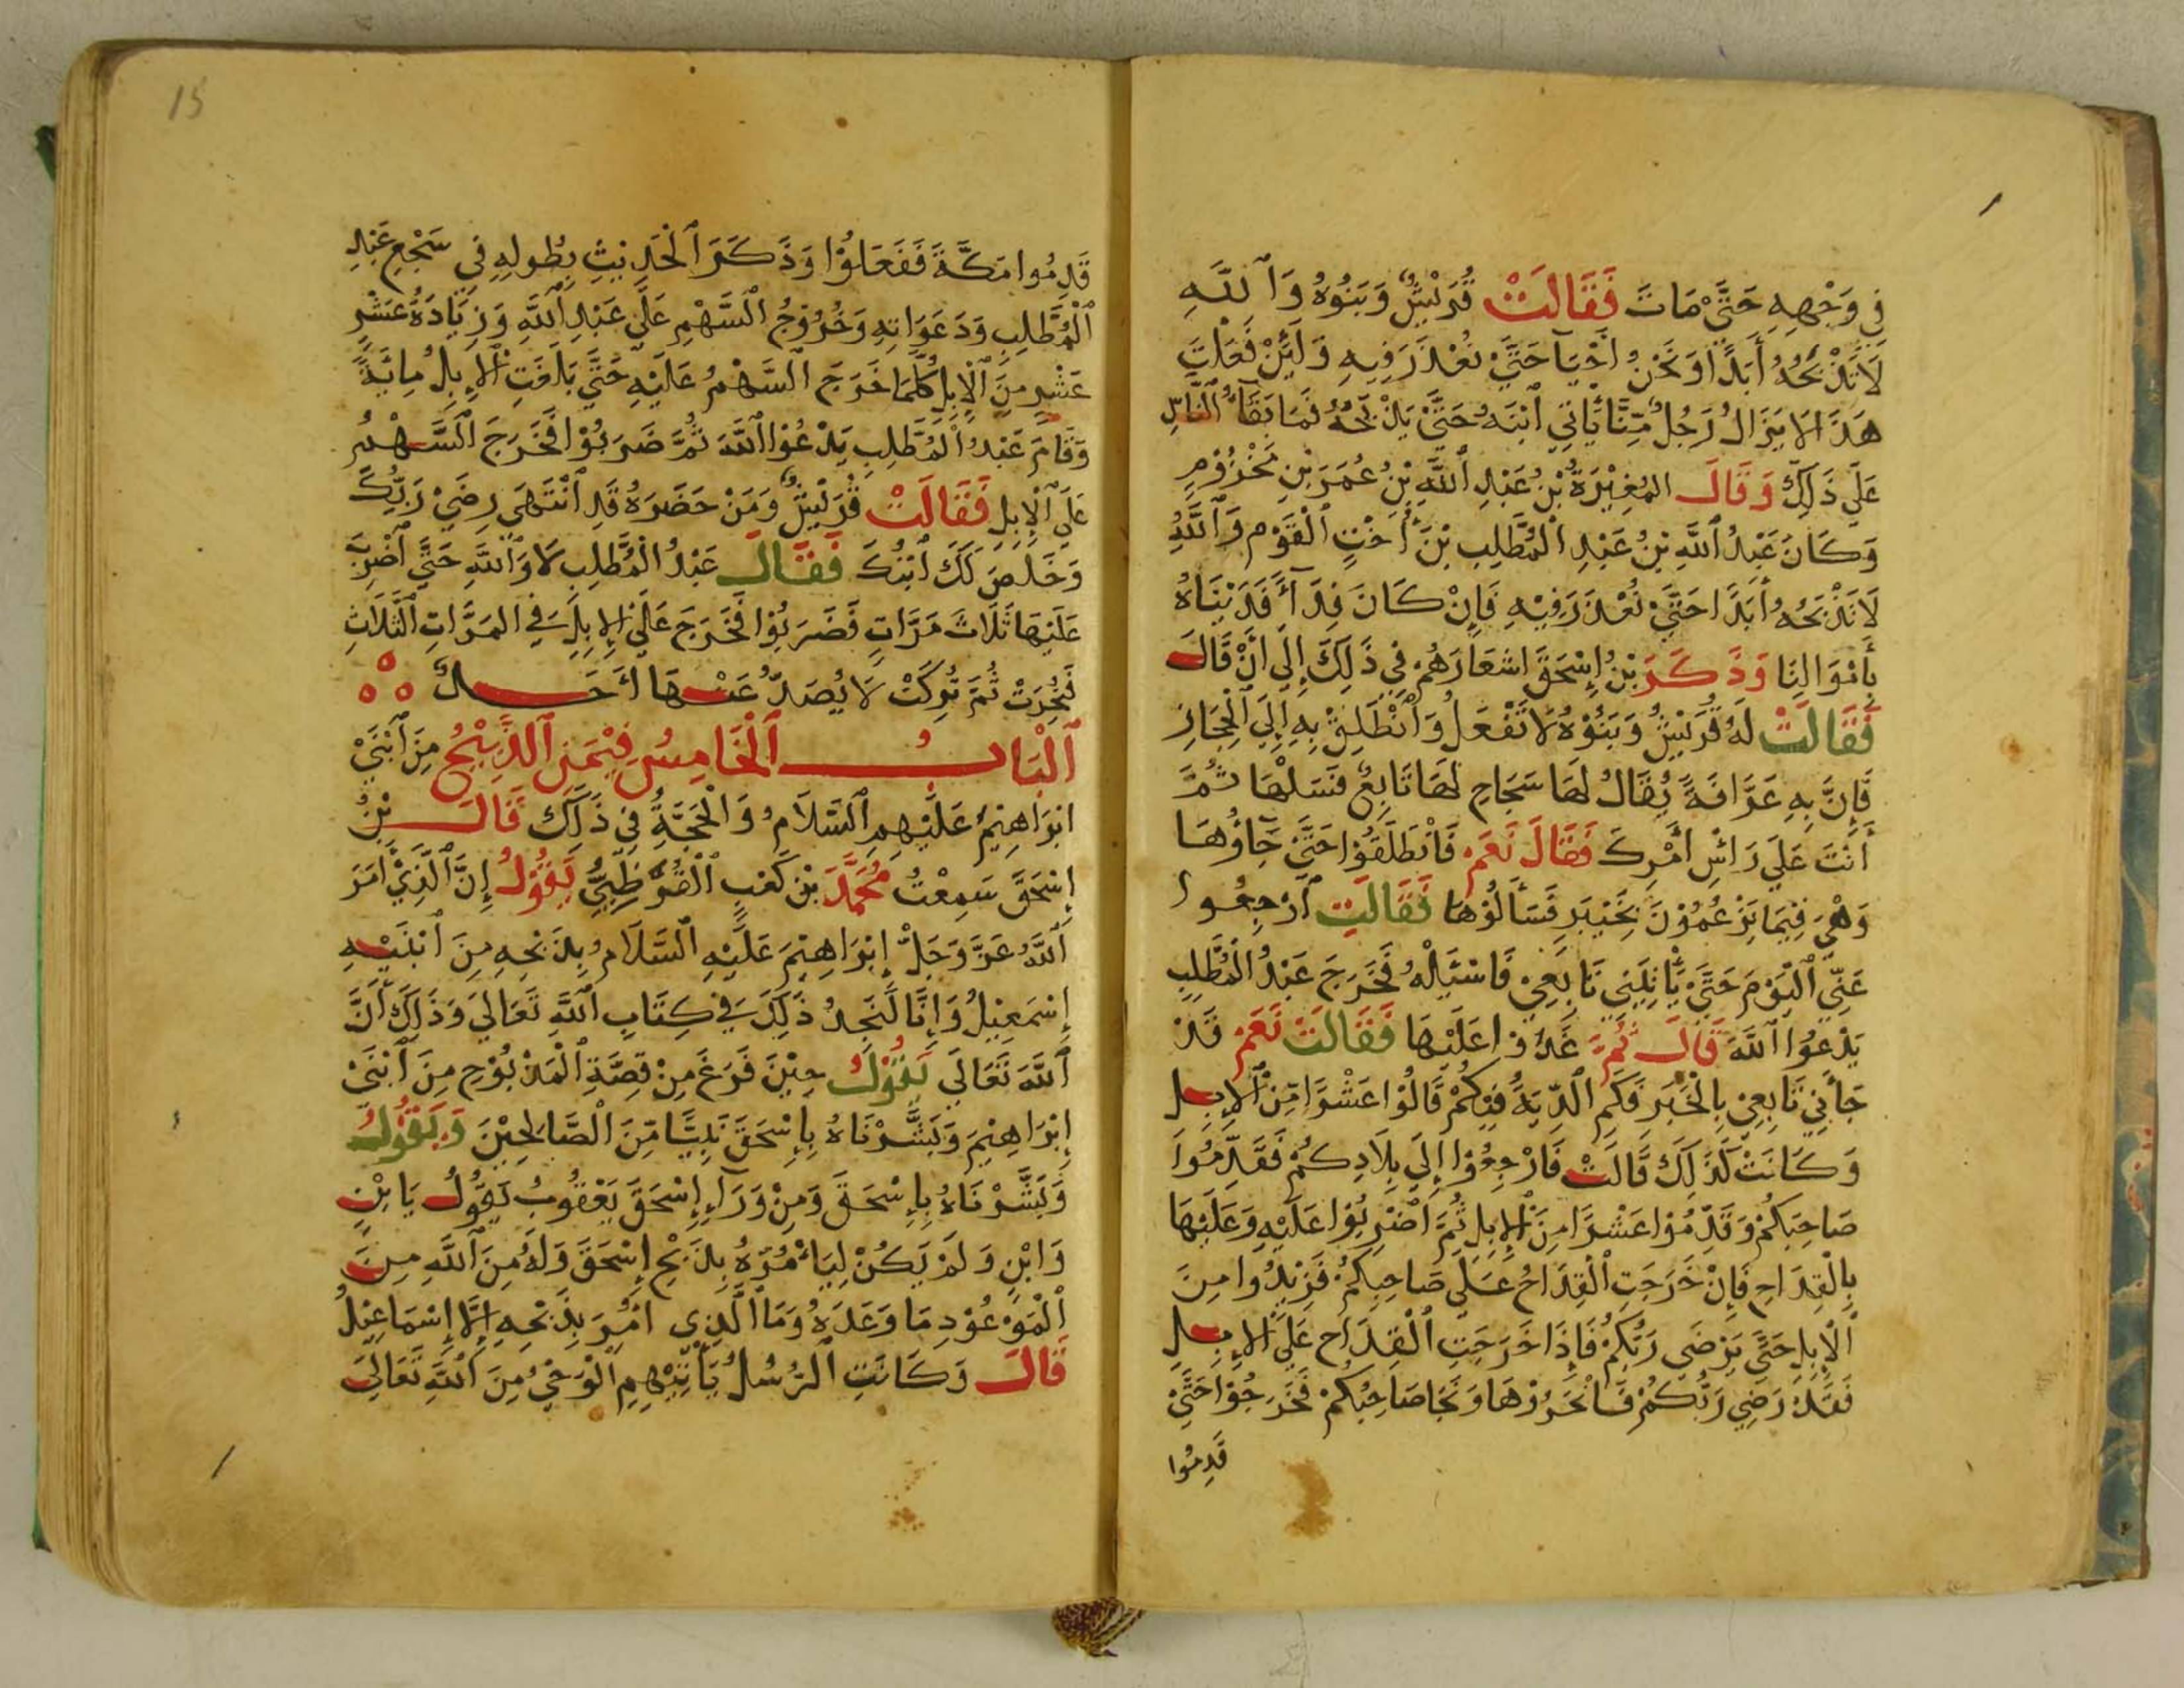 فِي وَجْهِهِ حَتَّي مَاتَ فَقَالَتْ قُرَيْشٌ وَبَنُوهُ وَاَللَّهِ
لَا تَذْبَحُهُ أَبَدًا وَنَحْنُ أَحْيَآ حَتَّيْ نُعْذَرَ فِيهِ وَلَئِنْ فَعَلْتَ
هَذَا لَا يَزَالُ رَجُلٌ مِّنَّا يَأْتِي اَبْنَهُ حَتَّيْ يَذْبَحُهُ فَمَا بَقَآءُ النَّاسِ
عَلَي ذَلِكَ وَقَالَ المُغِيْرَةُ بْنُ عَبْدِ اَللَّهِ بْنِ عُمَرَ بْنِ مَخْزُوْمٍ
وَكَانَ عَبْدُ اَللَّهِ بْنُ عَبْدِ اَلْمُطَّلِبِ بْنَ أُخْتِ اَلْقَوْمِ وَاَللَّهِ
لَا تَذْبَحُهُ أَبَدًا حَتَّيْ نُعْذَرَ فِيْهِ فَإِنْ كَانَ فِدَآءً فَدَيْنَاهُ
بِأَمْوَالِنَا وَذَكَرَ بْنُ إِسْحَقَ اِشعَارَهُمْ فِي ذَلِكَ إِلَي أَنْ قَالَ
فَقَالَتْ لَهُ قُرَيْشٌ وَبَنُوْهُ لَا تَفْعَلُ وَاَنْطَلِقْ بِهِ إِلَيَ اَلْحِجَازِ
فَإِنَّ بِهِ عَرَّافَةً يُقَالُ لَهَا سَجَاحِ لَهَا تَابِعٌ فَسَلْهَا ثُمَّ
أَنْتَ عَلَي رَاسِ أَمْرِكَ فَقَالَ نَعَمْ فَاْنْطَلَقُوْا حَتَّيْ جَآؤُهَا
وَهْيَ فِيْمَا يَزْعُمُوْنَ بِخَيْبَرٍ فَسَأَلُوْهَا فَقَالَتِ اَرْجِعُوا
عَنِّي اَلْيَوْمَ حَتَّيْ يَأْتِيَنِي تَابِعِيْ فَاسْئَلْهُ فَخَرَجَ عَبْدُ اَلْمُطَّلِبِ
يَدْعُوا اَللَّهَ قَالَ ثُمَّ غَدَوْا عَلَيْهَا فَقَالَتْ نَعَمْ قَدْ
جَآءَنِي تَابِعِيْ بِالْخَبَرِ فَكَمِ اَلدِّيَةُ فِيْكُمْ قَالُوْا عَشْرًا مِّنَ اَلإِبِلِ
وَكَانَتْ كَذَلِكَ قَالَتْ فَارْجِعُوْا إِلَي بِلَادِكُمْ فَقَدِّمُوْا
صَاحِبَكُمْ وَقَدِّمُوْا عَشْرًا مِنَ اَلإِبِلِ ثُمَّ اَضْرِبُوْا عَلَيْهِ وَعَلَيْهَا
بِالْقِدَاحِ فَإِنْ خَرَجَتِ اَلْقِدَاحُ عَلَي صَاحِبِكُمْ فَزِيْدُوا مِنَ
اَلْإِبِلِ حَتَّي يَرْضَي رَبُّكُمْ فَإِذَا خَرَجَتِ اَلْقِدَاح عَلَي اَلإِبِلِ
فَقَدْ رَضِي رَبُّكُمْ فَانْحَرُوْهَا وَنَجَا صَاحِبُكُمْ فَخَرَجُوْا حَتَّيْ
قَدِمُوا
15
قَدِمُوا مَكَّةَ فَفَعَلُوْا وَذَكَرَ اَلْحَدِيْثَ بِطُولِهِ فِي سَجْعِ عَبْدِ
اَلْمُطَّلِبِ وَدَعَوَاتِهِ وَخُرُوْجُ اَلسَّهْمِ عَلَي عَبْدِ اَللَّهِ وَزِيَادَةُ عَشْرٍ
عَشْرٍ مِنَ اَلْإِبِلِ كُلَّمَا خَرَجَ اَلسَّهْمُ عَلَيْهِ حَتَّي بَلَغَتِ اَلإِبِلُ مِائَيَةً
وَقَامَ عَبْدُ اَلْمُطَّلِبِ يَدْعُوْا اَللَّهَ ثُمَّ ضَرَبُوْا فَخَرَجَ اَلسَّهْمُ
عَلَي اَلْإِبِلِ فَقَالَتْ قُرَيْشٌ وَمَنْ حَضَرَهُ قَدِ اَنْتَهَي رِضَيْ رَبِّكَ
وَخَلُصَ لَكَ اَبْنُكَ فَقَالَ عَبْدُ اَلْمُطَّلِبِ لَا وَاَللَّهِ حَتَّي أَضْرِبَ
عَلَيْهَا ثَلَاثَ مَرَّاتٍ فَضَرَبُوْا فَخَرَجَ عَلَي اَلإِبِلِ فِي المَرَّاتِ الثَّلَاثِ
فَنُحِرَتْ ثُمَّ تُرِكَتْ لَا يُصَدُّ عَنْهَا أَحَدٌ
اَلْبَابُ اَلْخَامِسُ فِيْمَنِ اَلذَّبِيْحُ مِنَ اَبْنَيْ
ابْرَاهِيْمَ عَلَيْهِمِ اَلسَّلَامُ وَالْحُجَّةُ فِي ذَلِكَ قَالَ بْنُ
إِسْحَقَ سَمِعْتُ مُحَمَّدَ بْنَ كَعْبِ اَلْقُرَظِيَّ يَقُوْلُ إِنَّ اَلَّذِيْ أَمَرَ
اَللَّهُ عَزَّ وَجَلَّ إِبْرَاهِيْمَ عَلَيْهِ اَلسَّلَامُ بِذَبْحِهِ مِنَ اَبْنَيْهِ
إِسْمَعِيْلُ وَإِنَّا لَنَجِدُ ذَلِكَ فِي كِتَابِ اَللَّهِ تَعَالَي وَذَلِكَ أَنَّ
اَللَّهَ تَعَالَي يَقُوْلُ حِيْنَ فَرَغَ مِنْ قِصَّةِ اَلْمَذْبُوْحِ مِنَ اَبْنَيْ
إِبْرَاهِيْمَ وَبَشَّرْنَاهُ بِإِسْحَقَ نَبِيًّا مِّنَ اَلصَّالِحِيْنَ وَيَقُوْلُ
وَبَشَّرْنَاهُ بِإِسْحَقَ وَمِنْ وَرَآءِ إِسْحَقَ يَعْقُوبُ يَقُوْلُ يَا بْنٍ
وَابْنٍ وَلَمْ يَكُنْ لِيَأْمُرَهُ بِذَبْحِ إِسْحَقَ وَلَهُ مِنَ اَللَّهِ مِنَ
اَلْمَوْعُوْدِ مَا وَعَدَهُ وَمَا اَلَّذِي أُمِرَ بِذَبْحِهِ إِلَّا إِسْمَاعِيْلُ
قَالَ وَكَانَتِ اَلرُّسُلُ يَأْتِيْهِمِ اَلْوَحْيُ مِنَ اَللَّهِ تَعَالَي